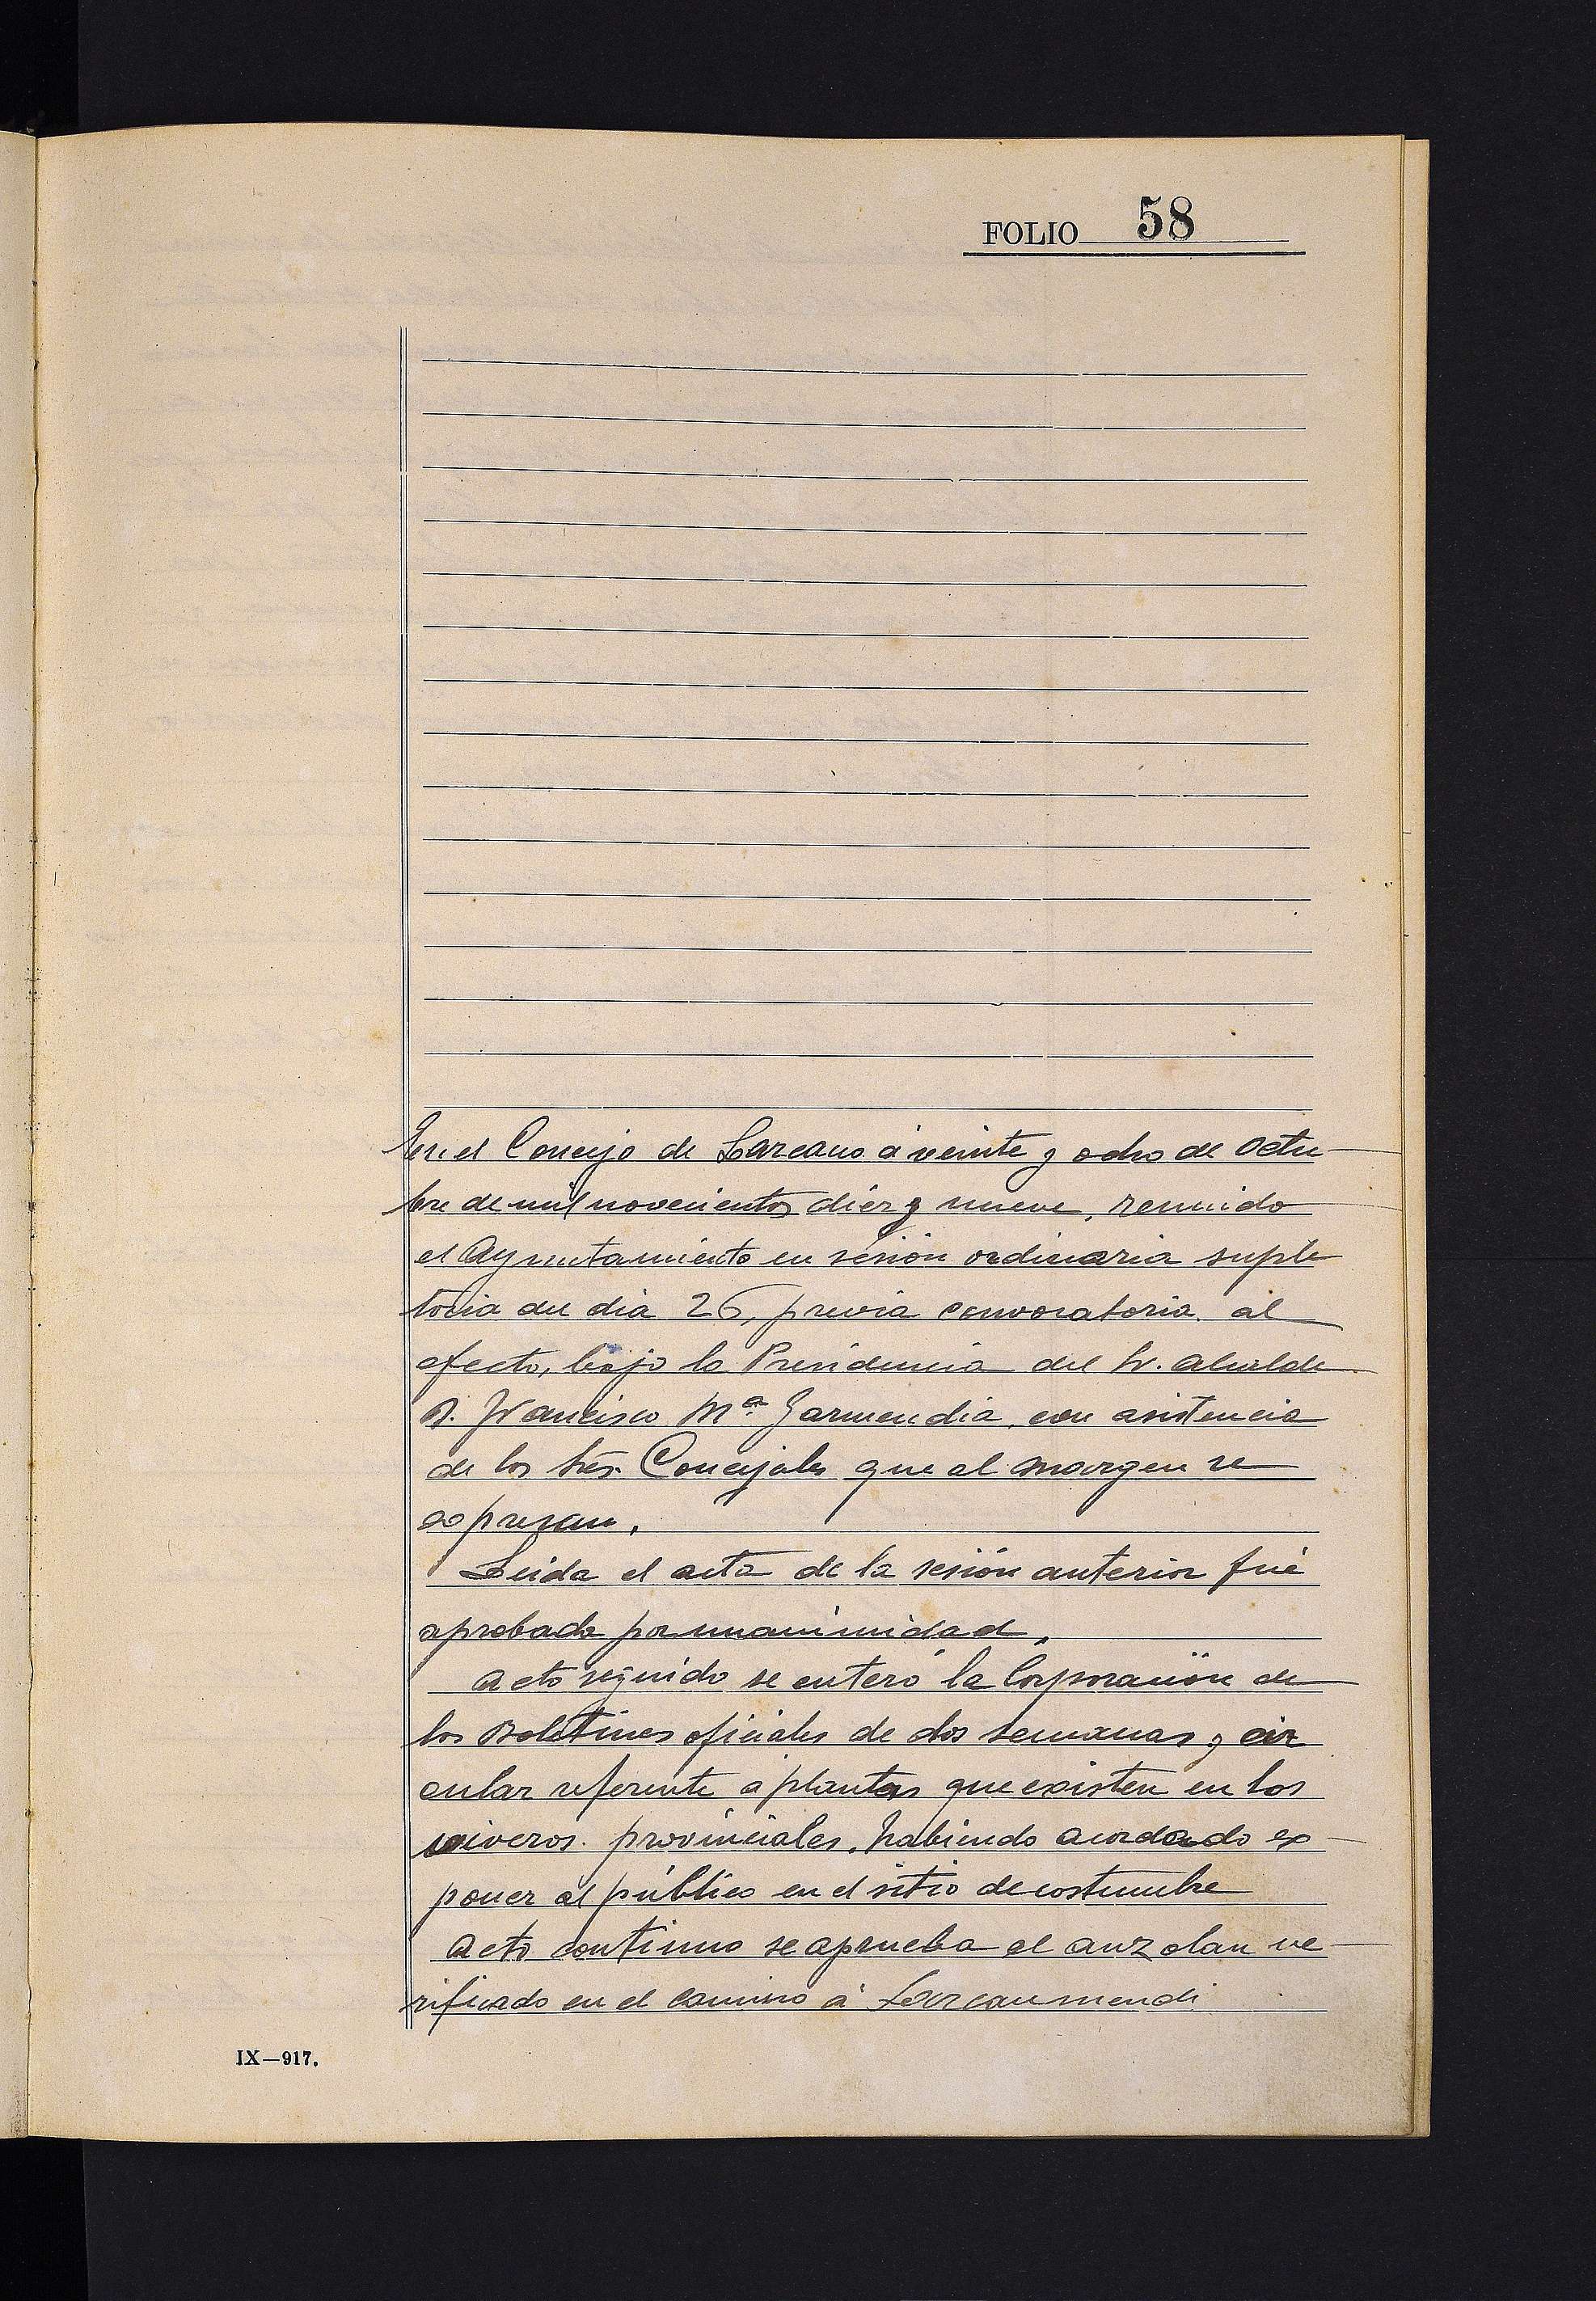 FOLIO 58
En el Concejo de Lazcano á veinte y ocho de Octu-
bre de mil novecientos diez y nueve, reunido
el Ayuntamiento en sesión ordinaria suple
toria del dia 26, previa convocatoria al
efecto, bajo la Presidencia del Sr. Alcalde
D. Francisco Mª Garmendia, con asistencia
de los Sres. Concejales que al margen se
expresan.
Leida el acta de la sesión anterior fué
aprobada por unanimidad.
Acto seguido se enteró la Corporación de
los Boletines oficiales de dos semanas y cir
cular referente á plantas que existen en los
viveros provinciales, habiendo acordado ex-
poner al público en el sitio de costumbre
Acto continuo se aprueba el auzolan ve-
rificado en el camino á Lazcaumendi
IX—917.